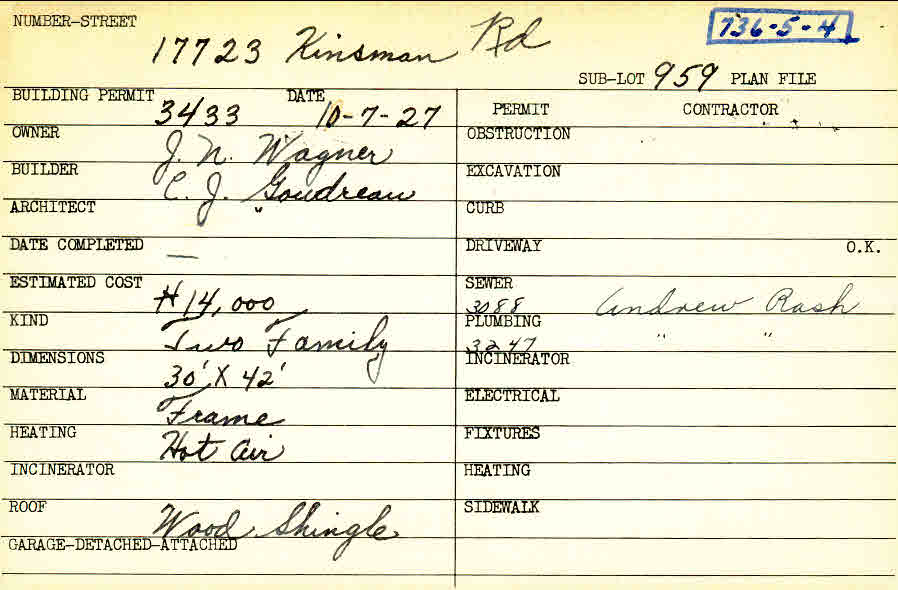 NUMBER-STREET
17723 Kinsman Rd
736-5-4
SUB-LOT 959 PLAN FILE
BUILDING PERMIT 3433 DATE 10-7-27
PERMIT CONTRACTOR
OWNER J. N. Wagner
OBSTRUCTION
BUILDER C. J. Goudreau
EXCAVATION
ARCHITECT "
CURB
DATE COMPLETED —
DRIVEWAY O.K.
ESTIMATED COST #14,000
SEWER 3088 Andrew Rash
KIND Two Family
PLUMBING 3247 " "
DIMENSIONS 30' X 42'
INCINERATOR
MATERIAL Frame
ELECTRICAL
HEATING Hot Air
FIXTURES
INCINERATOR
HEATING
ROOF Wood Shingle
SIDEWALK
GARAGE-DETACHED-ATTACHED